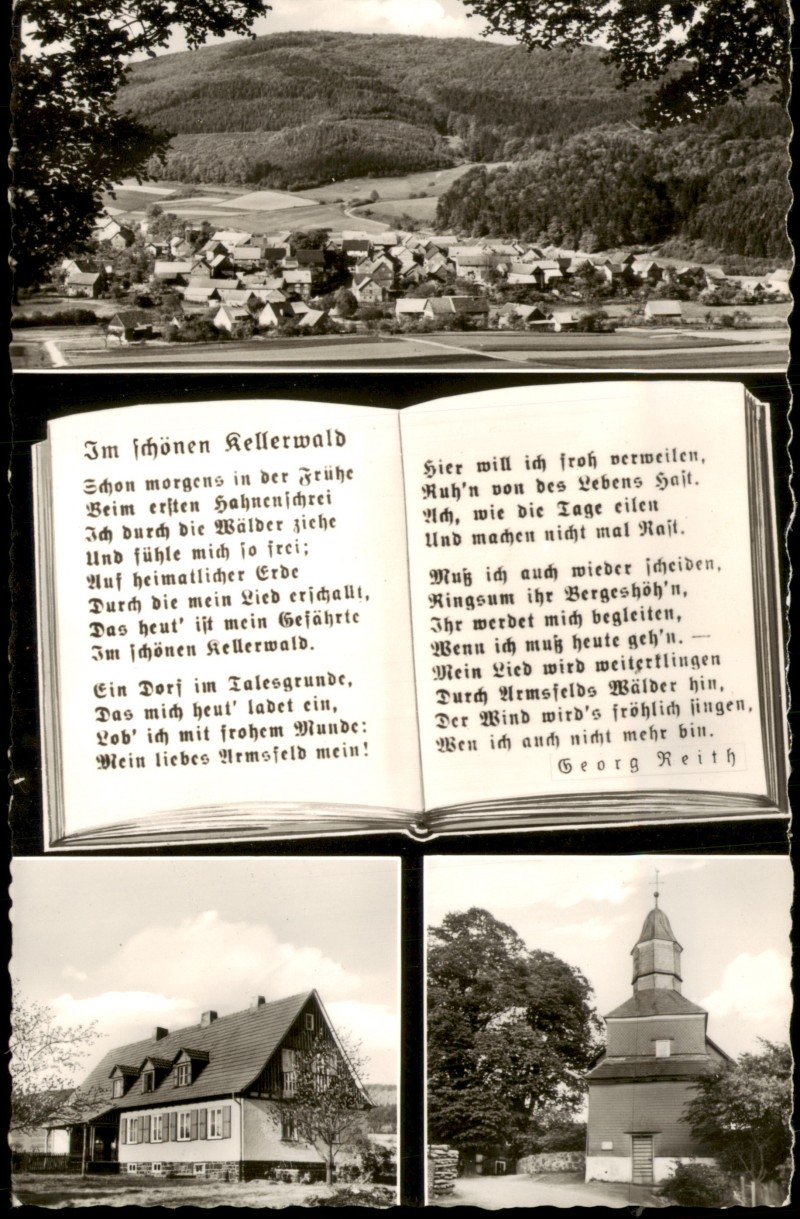 Im schönen Kellerwald
Schon morgens in der Frühe
Beim ersten Hahnenschrei
Ich durch die Wälder ziehe
Und fühle mich so frei;
Auf heimatlicher Erde
Durch die mein Lied erschallt,
Das heut' ist mein Gefährte
Im schönen Kellerwald.
Ein Dorf im Talesgrunde,
Das mich heut' ladet ein,
Lob' ich mit frohem Munde:
Mein liebes Armsfeld mein!
Hier will ich froh verweilen,
Ruh'n von des Lebens Hast.
Ach, wie die Tage eilen
Und machen nicht mal Rast.
Muß ich auch wieder scheiden,
Ringsum ihr Bergeshöh'n,
Ihr werdet mich begleiten,
Wenn ich muß heute geh'n. —
Mein Lied wird weiterklingen
Durch Armsfelds Wälder hin,
Der Wind wird's fröhlich singen,
Wen ich auch nicht mehr bin.
Georg Reith